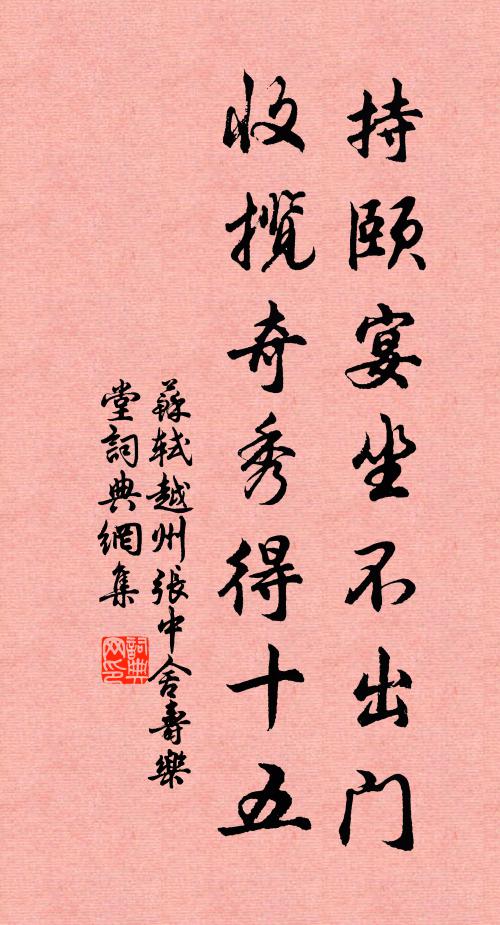 持頤宴坐不出门
收攬奇秀得十五
蘇軾越州張中舍壽樂
堂詞典網集
詞典网印